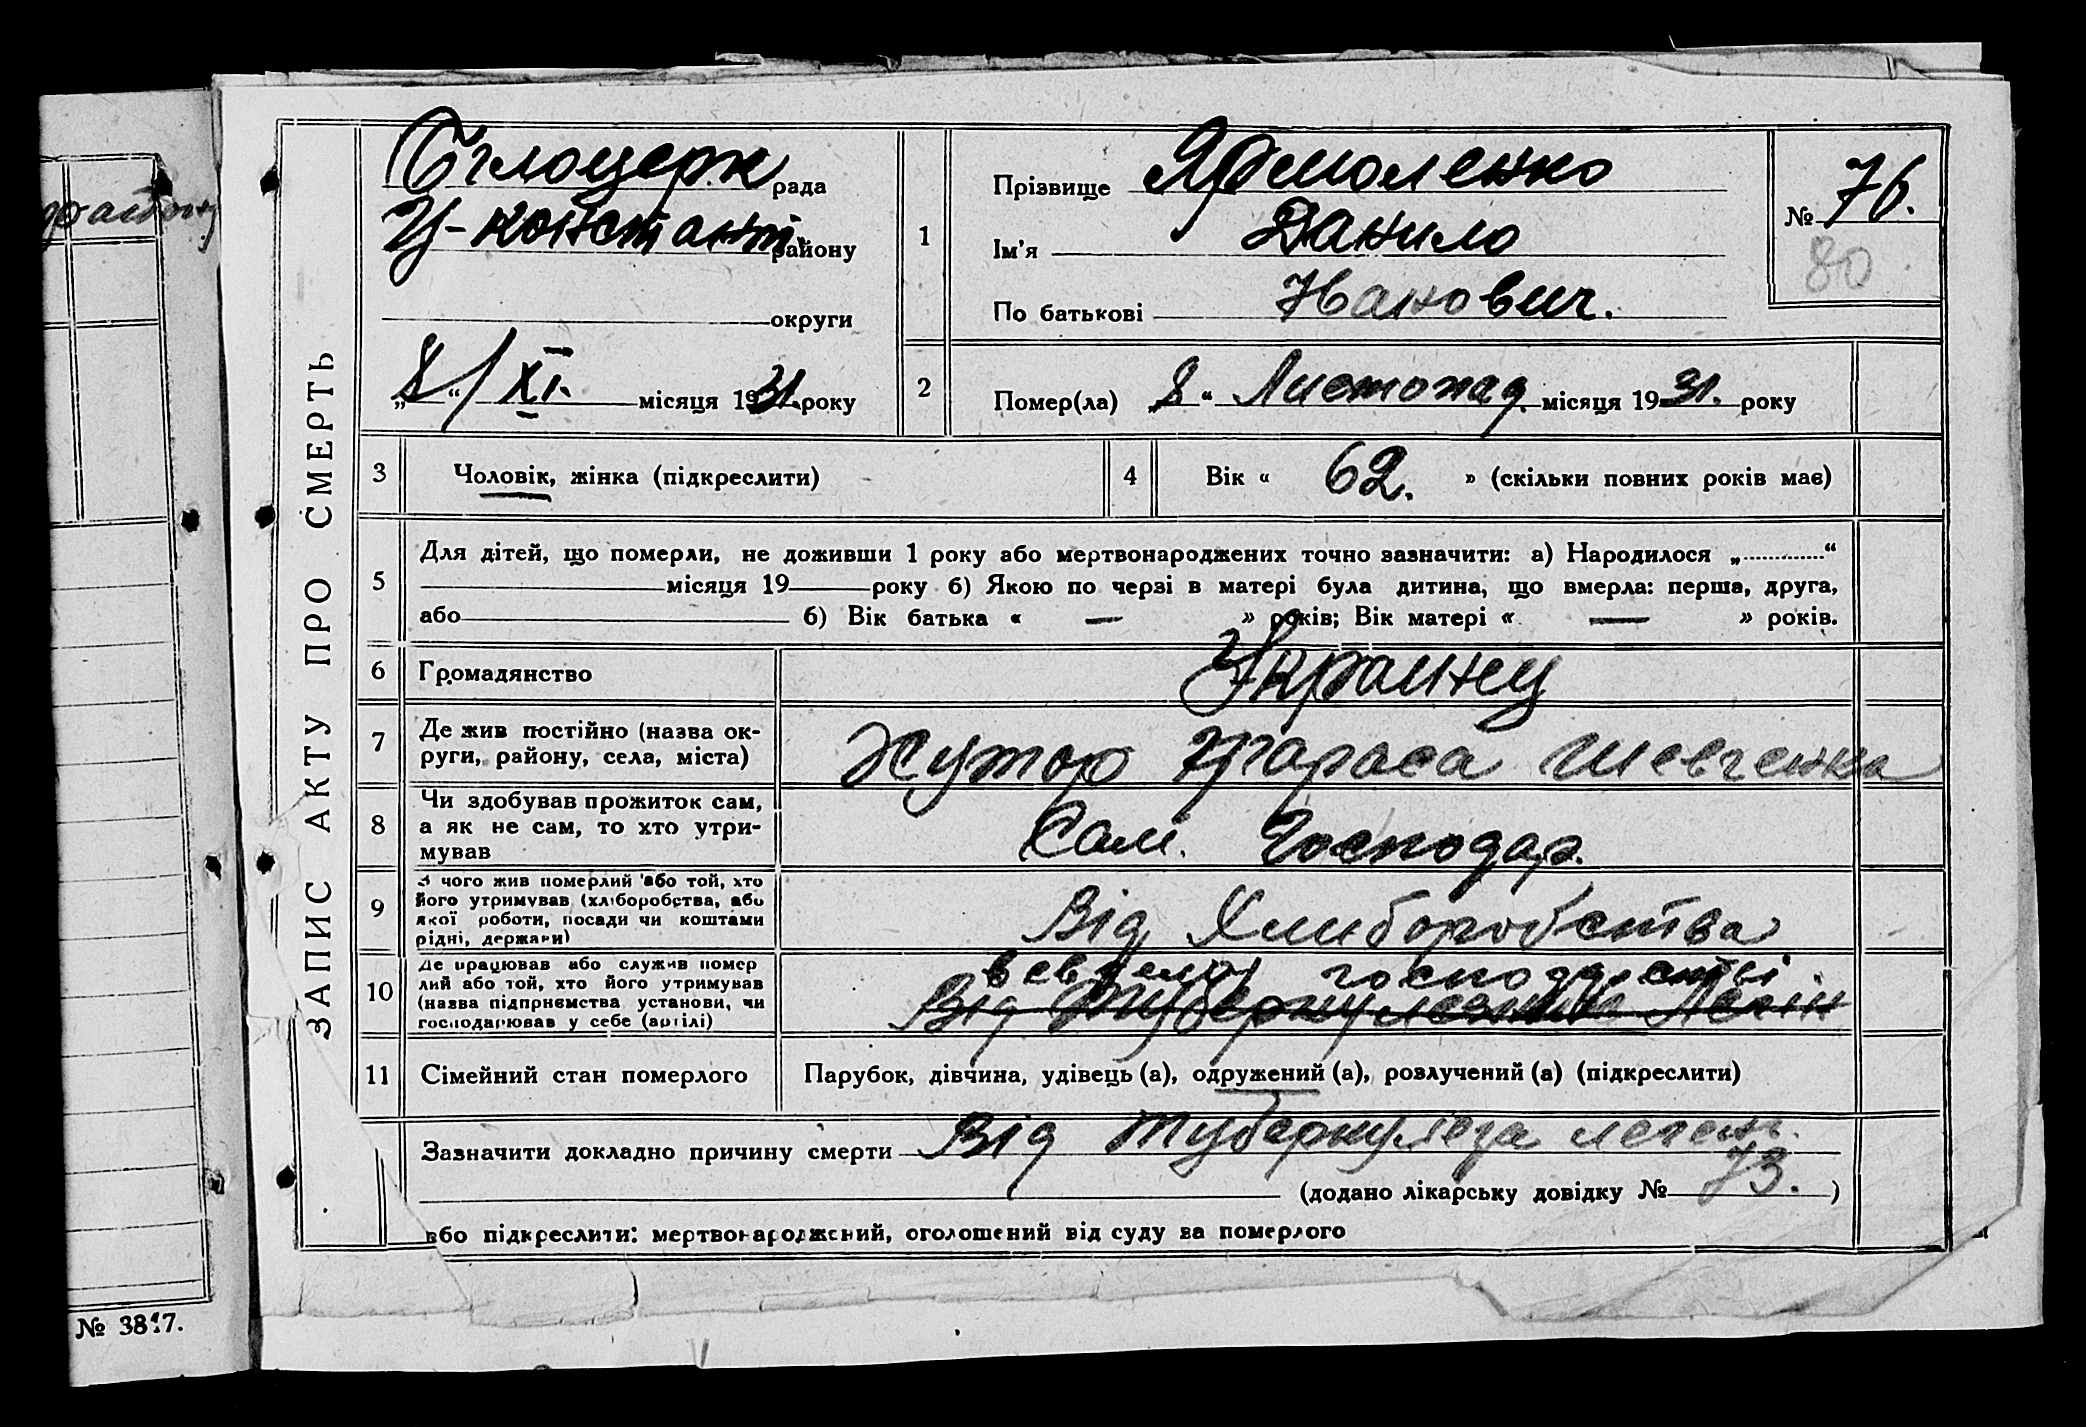 ЗАПИС АКТУ ПРО СМЕРТЬ
Білоцерк рада
Ц-констант. району
округи
„8“ / XI. місяця 1931. року
1
Прізвище Ярмоленко
Ім'я Данило
По батькові Іванович.
№ 76.
80
2
Помер(ла) „8“ Листопад місяця 1931. року
3 Чоловік, жінка (підкреслити)
4 Вік « 62. » (скільки повних років має)
5 Для дітей, що померли, не доживши 1 року або мертвонароджених точно зазначити: а) Народилося „............“
місяця 19 року б) Якою по черзі в матері була дитина, що вмерла: перша, друга,
або б) Вік батька « — » років; Вік матері « — » років.
6 Громадянство Украинец
7 Де жив постійно (назва ок-
руги, району, села, міста) Хутор Тараса Шевченка
8 Чи здобував прожиток сам,
а як не сам, то хто утри-
мував Сам. Господар.
9 З чого жив померлий або той, хто
його утримував (хліборобства, або
якої роботи, посади чи коштами
рідні, держави) Від Хлиборобства
10 Де працював або служив помер
лий або той, хто його утримував
(назва підприємства установи, чи
господарював у себе (артілі)
11 Сімейний стан померлого Парубок, дівчина, удівець (а), одружений (а), розлучений (а) (підкреслити)
Зазначити докладно причину смерти Від туберкульоза легень.
(додано лікарську довідку № 73. )
або підкреслити: мертвонароджений, оголошений від суду за померлого
№ 3817.